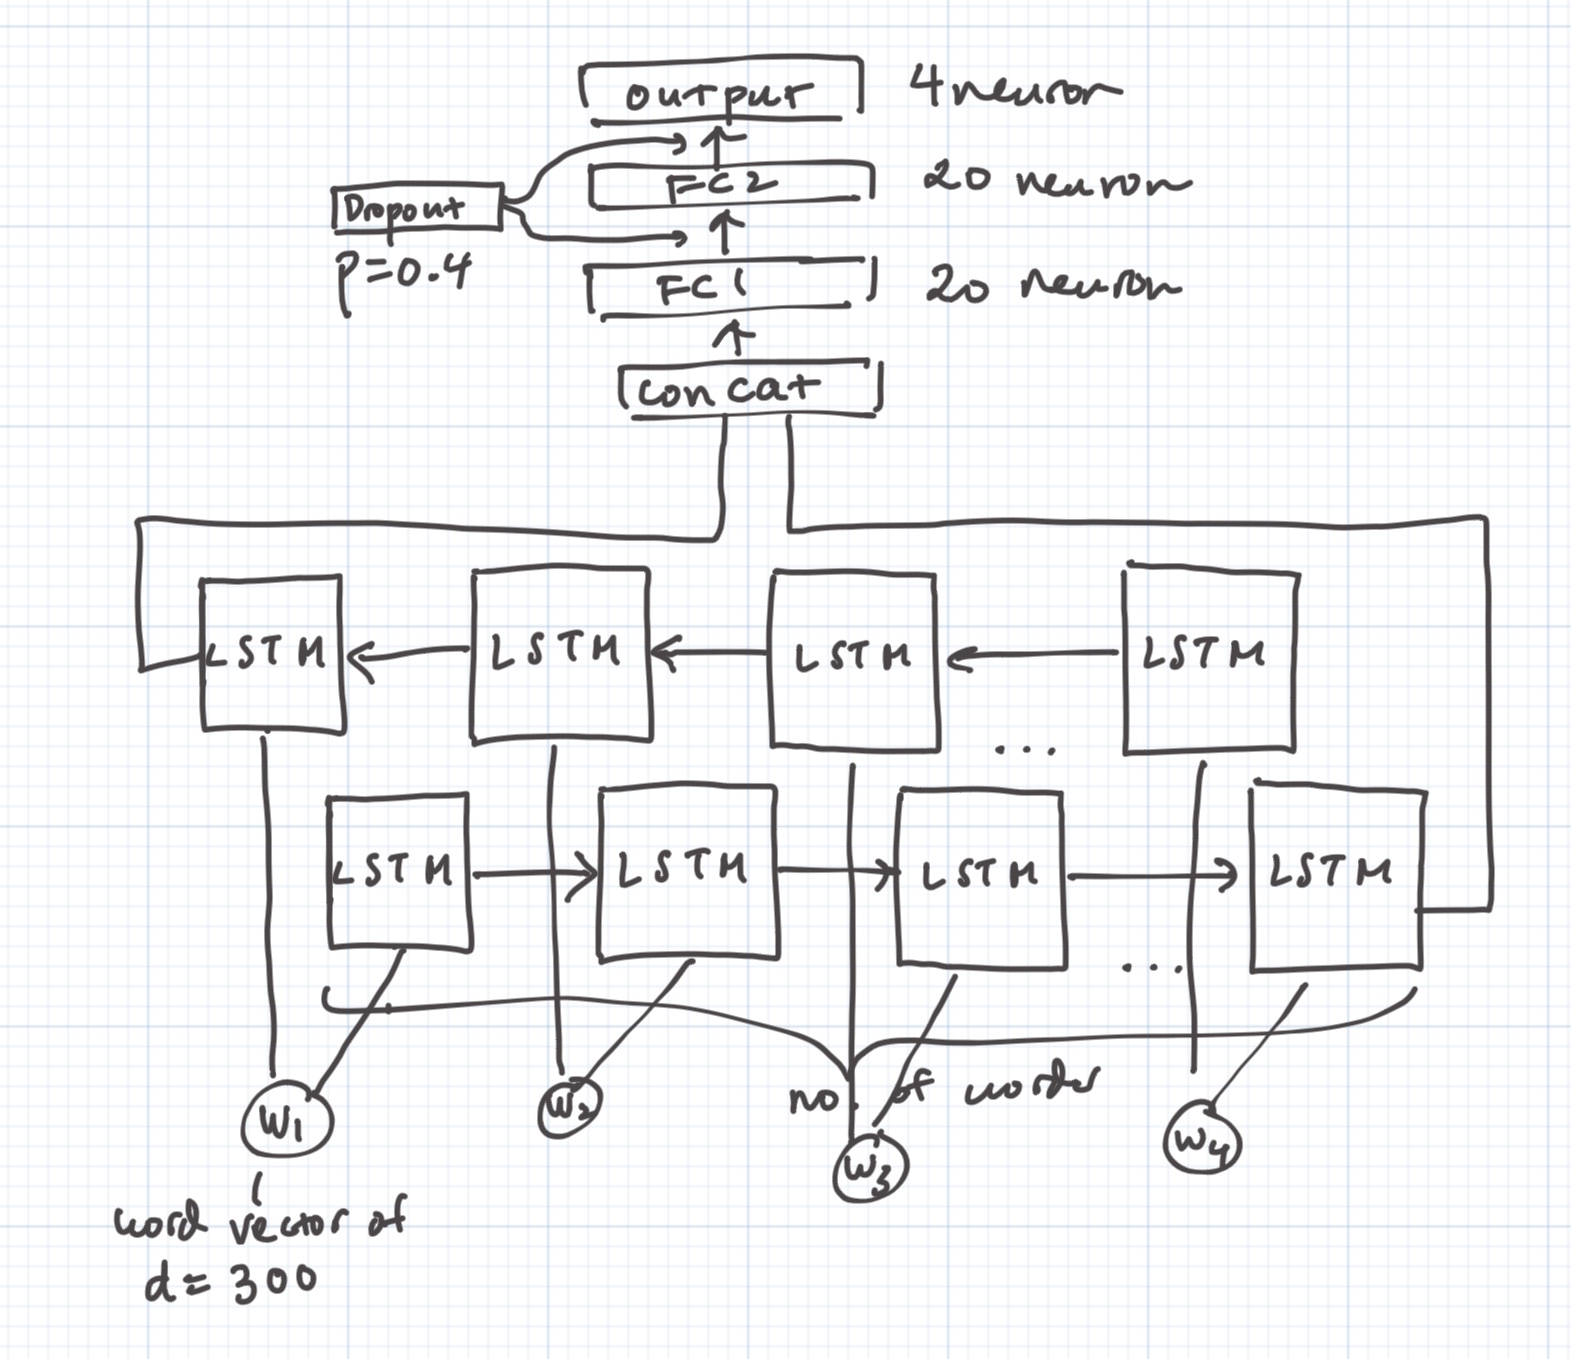 output 4 neuron
FC2 20 neuron
Dropout
P=0.4
FC1 20 neuron
concat
LSTM LSTM LSTM LSTM
...
LSTM LSTM LSTM LSTM
...
no. of words
W1 W2 W3 W4
word vector of
d=300